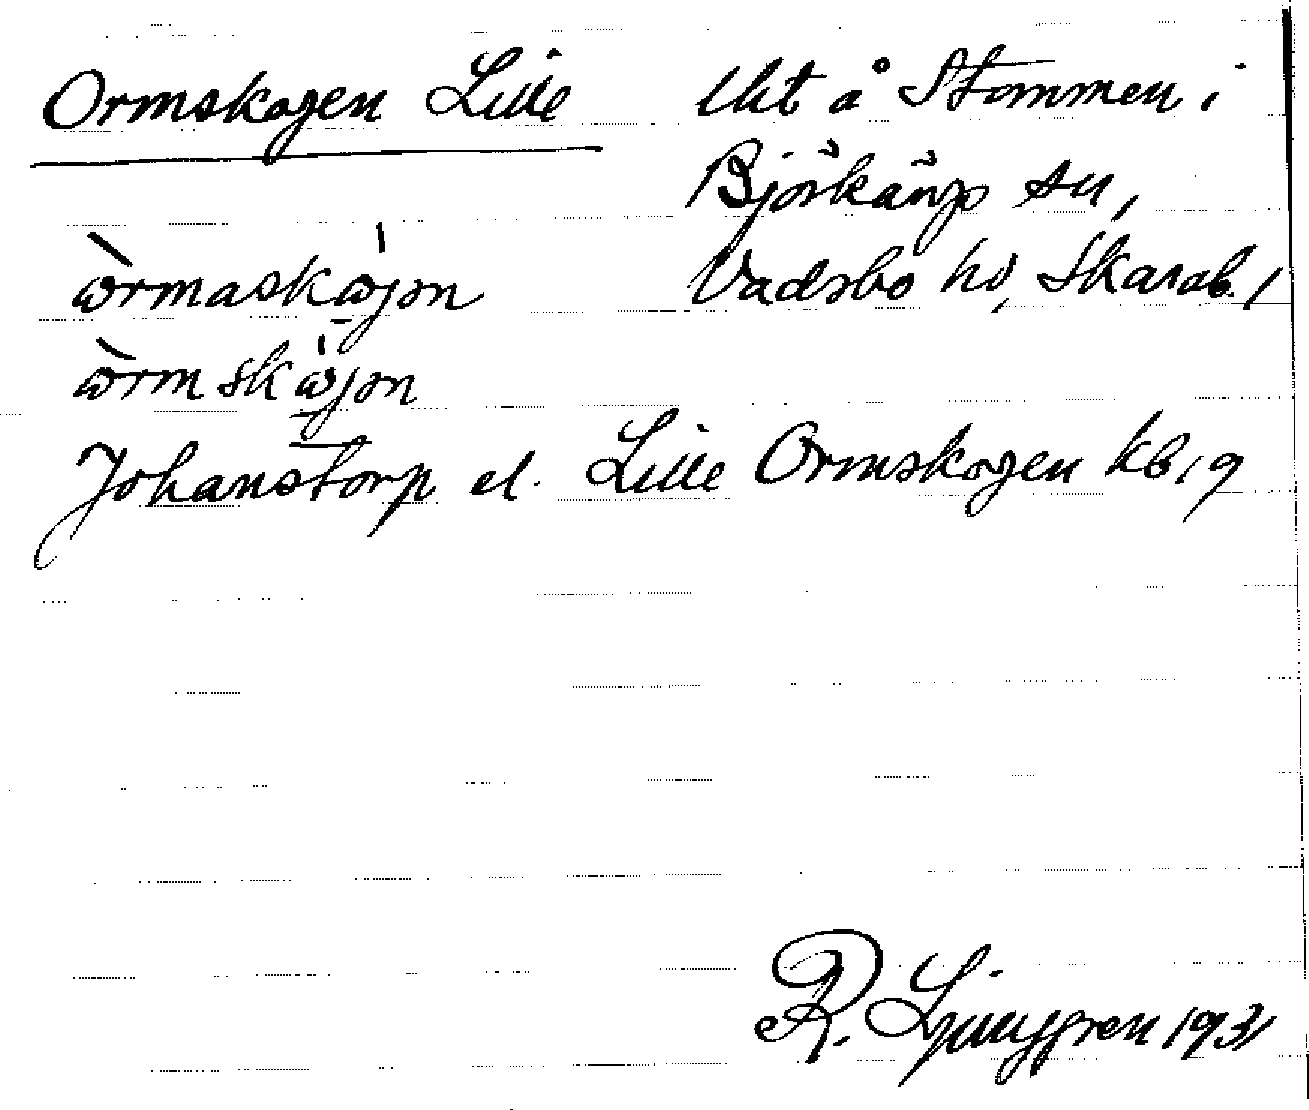 Ormskogen Lille
Uht å Stommen i
Björkäng sn,
Vadsbo hd, Skarab. l
ɷ̀rmaskɷ́jən
ɷ̀rmskɷ́jən
Johanstorp el. Lille Ormskogen kb, 9
R. Ljunggren 1931